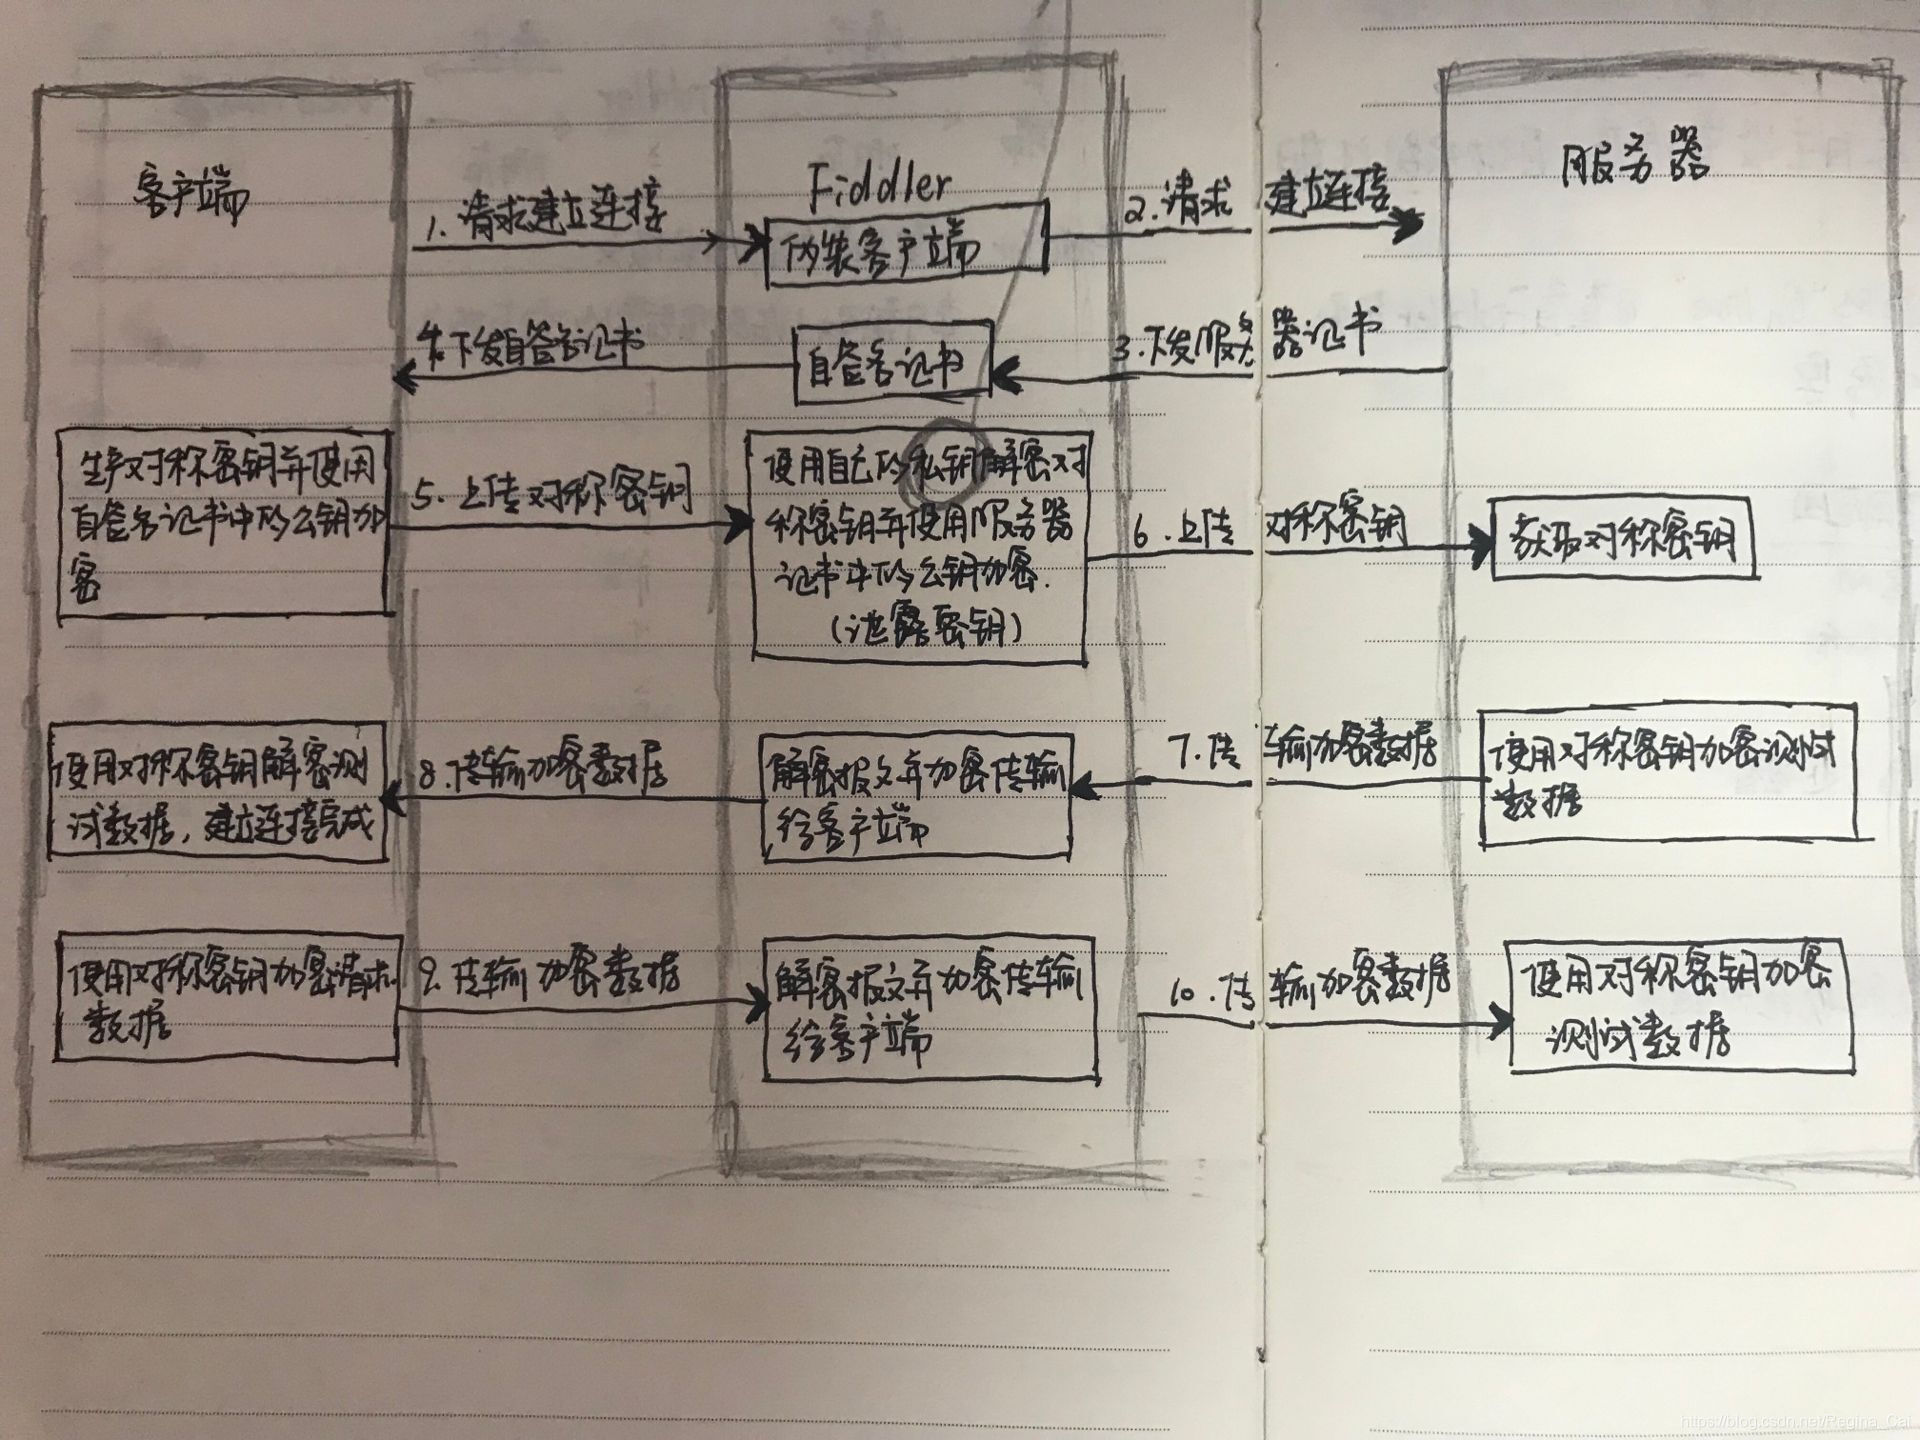 客户端
Fiddler
服务器
1. 请求建立连接
伪装客户端
2. 请求 建立连接
4. 下发自签名证书
自签名证书
3. 下发服务器证书
生产对称密钥并使用
自签名证书中的公钥加
密
5. 上传对称密钥
使用自己的私钥解密对
称密钥并使用服务器
证书中的公钥加密.
(泄露密钥)
6. 上传 对称密钥
获取对称密钥
使用对称密钥解密测
试数据，建立连接完成
8. 传输加密数据
解密报文并加密传输
给客户端
7. 传输加密数据
使用对称密钥加密测试
数据
使用对称密钥加密请求
数据
9. 传输加密数据
解密报文并加密传输
给客户端
10. 传输加密数据
使用对称密钥加密
测试数据
https://blog.csdn.net/Regina_Cai